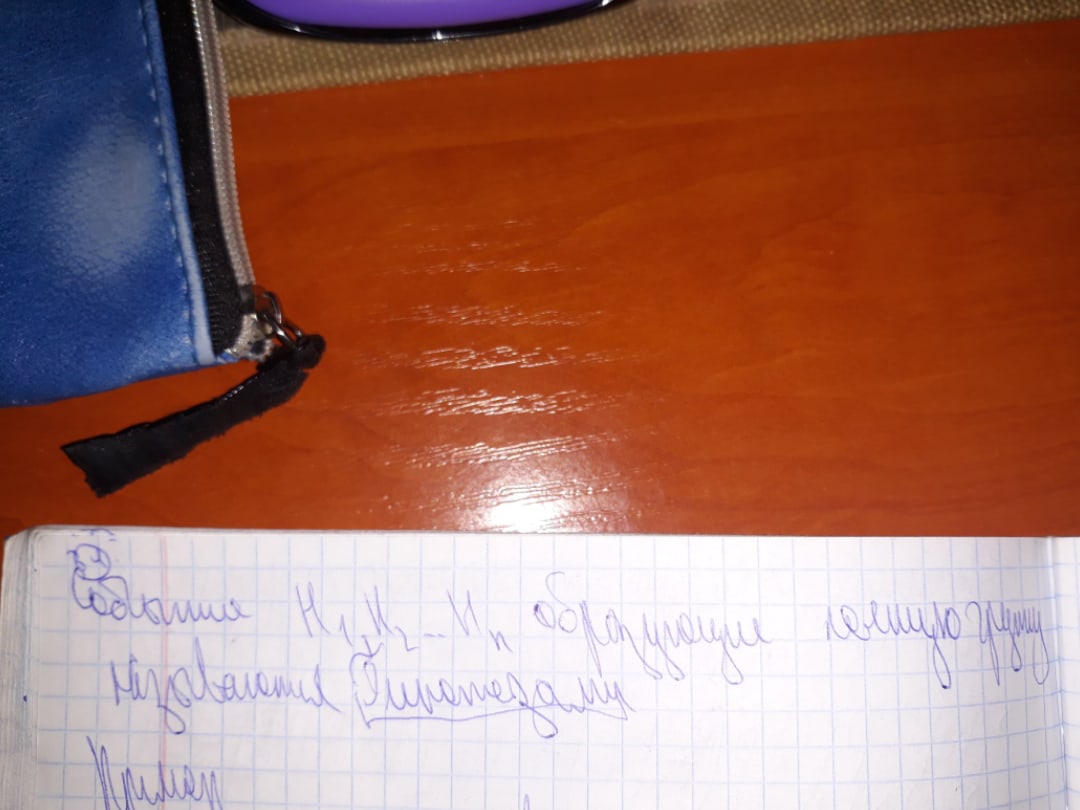 События H₁, H₂ .. Hₙ образующие полную группу
называются Гипотезами
Пример